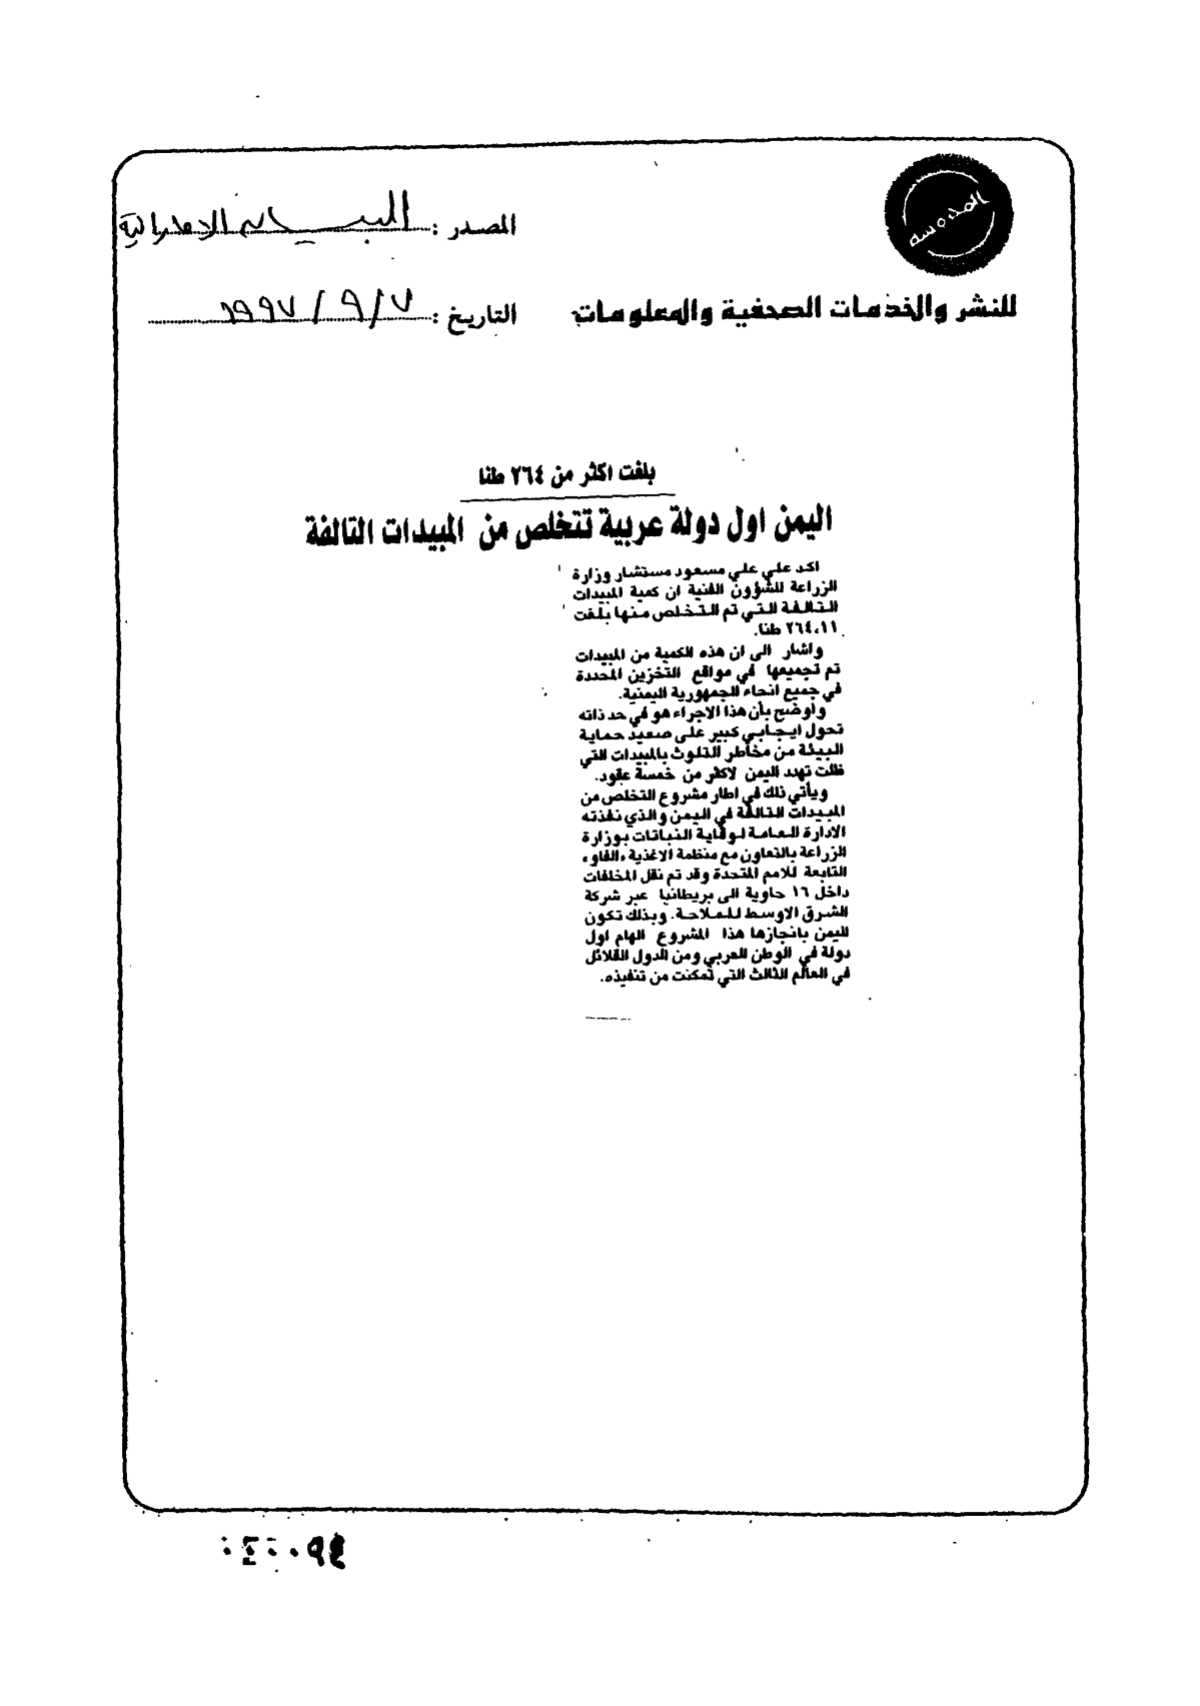 المصدر : البيان الاماراتية
للنشر والخدمات الصحفية والمعلومات
التاريخ : ٧ / ٩ / ١٩٩٧
بلغت اكثر من ٢٦٤ طنا
اليمن اول دولة عربية تتخلص من المبيدات التالفة
اكد علي علي مسعود مستشار وزارة
الزراعة للشؤون الفنية ان كمية المبيدات
التالفة التي تم التخلص منها بلغت
٢٦٤،١١ طنا.
واشار الى ان هذه الكمية من المبيدات
تم تجميعها في مواقع التخزين المحددة
في جميع انحاء الجمهورية اليمنية.
واوضح بأن هذا الاجراء هو في حد ذاته
تحول ايجابي كبير على صعيد حماية
البيئة من مخاطر التلوث بالمبيدات التي
ظلت تهدد اليمن لاكثر من خمسة عقود.
ويأتي ذلك في اطار مشروع التخلص من
المبيدات التالفة في اليمن والذي نفذته
الادارة العامة لوقاية النباتات بوزارة
الزراعة بالتعاون مع منظمة الاغذية «الفاو»
التابعة للامم المتحدة وقد تم نقل المخلفات
داخل ١٦ حاوية الى بريطانيا عبر شركة
الشرق الاوسط للملاحة. وبذلك تكون
اليمن بانجازها هذا المشروع الهام اول
دولة في الوطن العربي ومن الدول القلائل
في العالم الثالث التي تمكنت من تنفيذه.